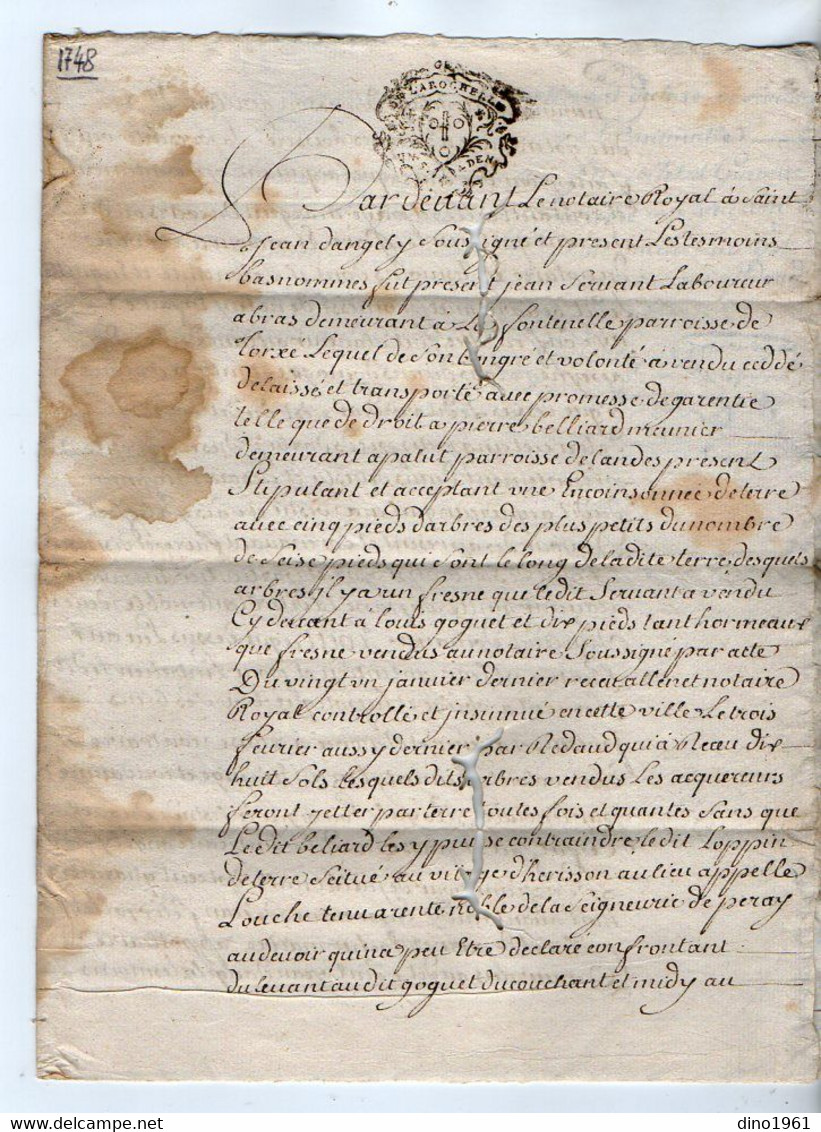 1748
LAROCHELLE
Pardevant Le notaire Royal à Saint
Jean dangely Soussigné et present Les tesmoins
bas nommes fut present jean Servant Laboureur
a bras demeurant à La fontenelle parroisse de
torxé Lequel de Son bon gré et volonté à vendu ceddé
delaissé et transporté avec promesse de garentie
telle que de droit a pierre belliard meunier
demeurant a palut parroisse de landes present
Stipulant et acceptant vne Encoinsonneé de terre
avec cinq pieds darbres des plus petits du nombre
de Seise pieds qui Sont le long de la dite terre, desquels
arbres il y a vn fresne que ledit Servant a vendu
Cy devant à louis goguet et dix pieds tant hormeaux
que fresne vendus au notaire Soussigné par acte
Du vingt vn janvier dernier recu allenet notaire
Royal controllé et jnsinnué en cette ville Le trois
fevrier aussy dernier par Redaud qui à Reçu dix
huit Sols Lesquels dits arbres vendus Les acquereurs
feront jetter par terre toutes fois et quantes Sans que
Le dit beliard les y puisse contraindre, le dit Loppin
de terre Scitué au village d'herisson au lieu appellé
Louche tenu a rente noble de la Seigneurie de peray
au devoir qui n'a peu Etre declaré confrontant
du levant audit goguet du couchant et midy au
dino1961